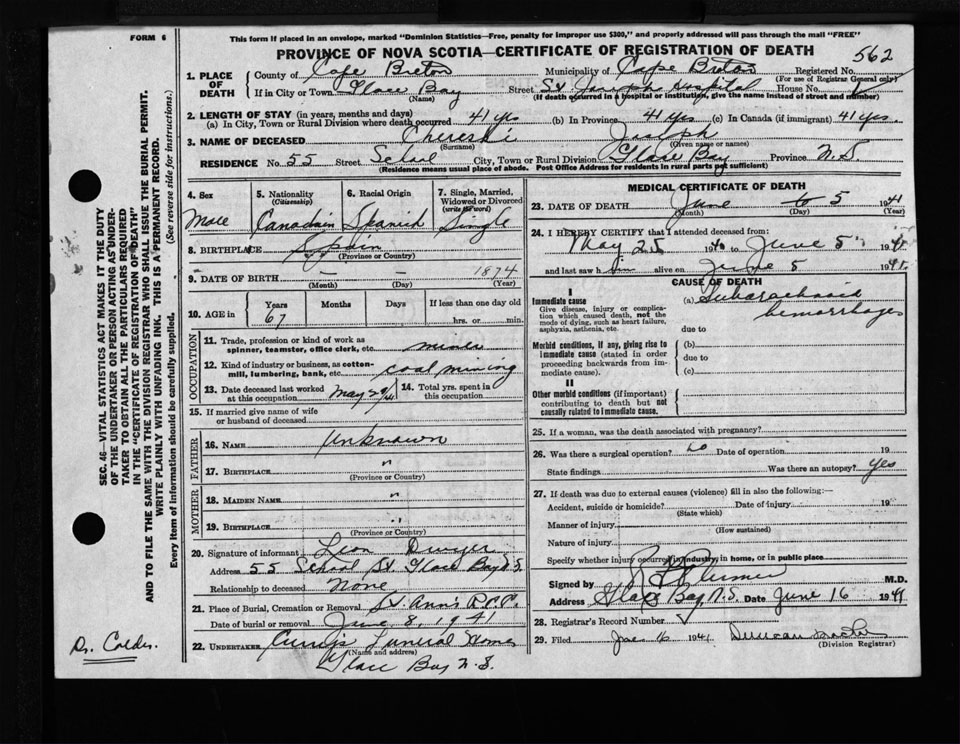 FORM 6
This form if placed in an envelope, marked "Dominion Statistics—Free, penalty for improper use $300," and properly addressed will pass through the mail "FREE"
PROVINCE OF NOVA SCOTIA—CERTIFICATE OF REGISTRATION OF DEATH
562
1. PLACE OF DEATH County of Cape Breton Municipality of Cape Breton Registered No.
(For use of Registrar General only)
If in City or Town Glace Bay Street St. Joseph's Hospital House No.
(Name) (If death occurred in a hospital or institution, give the name instead of street and number)
2. LENGTH OF STAY (in years, months and days)
(a) In City, Town or Rural Division where death occurred 41 yrs (b) In Province 41 yrs (c) In Canada (if immigrant) 41 yrs.
3. NAME OF DECEASED Chereski Joseph
(Surname) (Given name or names)
RESIDENCE No. 55 Street School City, Town or Rural Division Glace Bay Province N.S.
(Residence means usual place of abode. Post Office Address for residents in rural parts not sufficient)
4. Sex Male
5. Nationality (Citizenship) Canadain
6. Racial Origin Spanish
7. Single, Married, Widowed or Divorced (write the word) Single
8. BIRTHPLACE Spain
(Province or Country)
9. DATE OF BIRTH — — 1874
(Month) (Day) (Year)
10. AGE in Years 67 Months Days If less than one day old
hrs. or min.
OCCUPATION
11. Trade, profession or kind of work as spinner, teamster, office clerk, etc. miner
12. Kind of industry or business, as cotton-mill, lumbering, bank, etc. coal mining
13. Date deceased last worked at this occupation May 29/41
14. Total yrs. spent in this occupation
15. If married give name of wife or husband of deceased
FATHER
16. NAME Unknown
17. BIRTHPLACE "
(Province or Country)
MOTHER
18. MAIDEN NAME "
19. BIRTHPLACE "
(Province or Country)
20. Signature of informant Leon Dwyer
Address 55 School St. Glace Bay N.S.
Relationship to deceased None
21. Place of Burial, Cremation or Removal St. Ann's R.C.C.
Date of burial or removal June 8, 1941
22. UNDERTAKER Curry's Funeral Home
(Name and address)
Glace Bay N.S.
MEDICAL CERTIFICATE OF DEATH
23. DATE OF DEATH June 5 1941
(Month) (Day) (Year)
24. I HEREBY CERTIFY that I attended deceased from:
May 25 19 to June 5 1941
and last saw h im alive on June 5 1941.
CAUSE OF DEATH
I
Immediate cause
Give disease, injury or complication which caused death, not the mode of dying, such as heart failure, asphyxia, asthenia, etc.
(a) Subarachnoid hemorrhage
due to
Morbid conditions, if any, giving rise to immediate cause (stated in order proceeding backwards from immediate cause).
(b)
due to
(c)
II
Other morbid conditions (if important) contributing to death but not causally related to immediate cause.
25. If a woman, was the death associated with pregnancy?
26. Was there a surgical operation? no Date of operation 19
State findings Was there an autopsy? yes
27. If death was due to external causes (violence) fill in also the following:—
Accident, suicide or homicide? Date of injury 19
(State which)
Manner of injury
(How sustained)
Nature of injury
Specify whether injury occurred in industry, in home, or in public place
Signed by M.D.
Address Glace Bay, N.S. Date June 16 1941
28. Registrar's Record Number
29. Filed 1941 Duncan
(Division Registrar)
SEC. 46—VITAL STATISTICS ACT MAKES IT THE DUTY OF THE UNDERTAKER OR PERSON ACTING AS UNDERTAKER TO OBTAIN ALL THE PARTICULARS REQUIRED IN THE "CERTIFICATE OF REGISTRATION OF DEATH" AND TO FILE THE SAME WITH THE DIVISION REGISTRAR WHO SHALL ISSUE THE BURIAL PERMIT.
WRITE PLAINLY WITH UNFADING INK. THIS IS A PERMANENT RECORD.
Every item of information should be carefully supplied. (See reverse side for instructions.)
Dr. Calder.